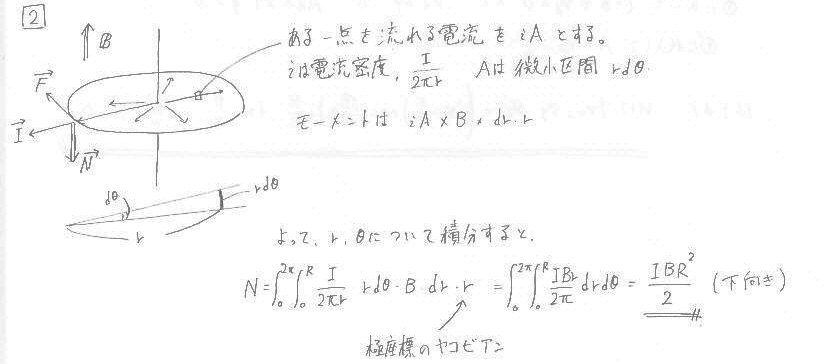 2
B
ある一点を流れる電流を iA とする。
iは電流密度, I/2πr Aは微小区間 rdθ
F
I
モーメントは iA × B × dr・r
N
dθ
rdθ
r
よって、r, θについて積分すると、
N = ∫₀^2π ∫₀^R I/2πr rdθ・B dr・r = ∫₀^2π ∫₀^R IBr/2π drdθ = IBR²/2 (下向き)
極座標のヤコビアン